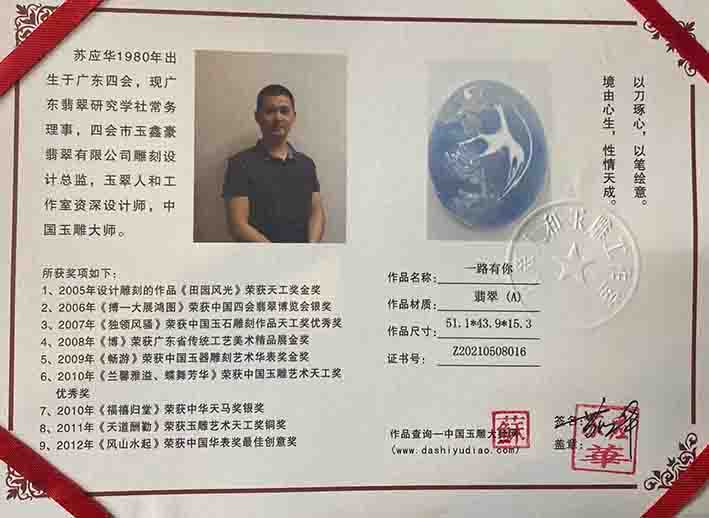 苏应华1980年出
生于广东四会，现广
东翡翠研究学社常务
理事，四会市玉鑫豪
翡翠有限公司雕刻设
计总监，玉翠人和工
作室资深设计师，中
国玉雕大师。
以刀琢心，以笔绘意。
境由心生，性情天成。
所获奖项如下：
1、2005年设计雕刻的作品《田园风光》荣获天工奖金奖
2、2006年《搏一大展鸿图》荣获中国四会翡翠博览会银奖
3、2007年《独领风骚》荣获中国玉石雕刻作品天工奖优秀奖
4、2008年《博》荣获广东省传统工艺美术精品展金奖
5、2009年《畅游》荣获中国玉器雕刻艺术华表奖金奖
6、2010年《兰馨雅溢、蝶舞芳华》荣获中国玉雕艺术天工奖
优秀奖
7、2010年《福禧归堂》荣获中华天马奖银奖
8、2011年《天道酬勤》荣获玉雕艺术天工奖铜奖
9、2012年《风山水起》荣获中国华表奖最佳创意奖
作品名称：一路有你
作品材质：翡翠（A）
作品尺寸：51.1*43.9*15.3
证书号：Z20210508016
作品查询一中国玉雕大师网
(www.dashiyudiao.com)
蘇
签名：
盖章：
華